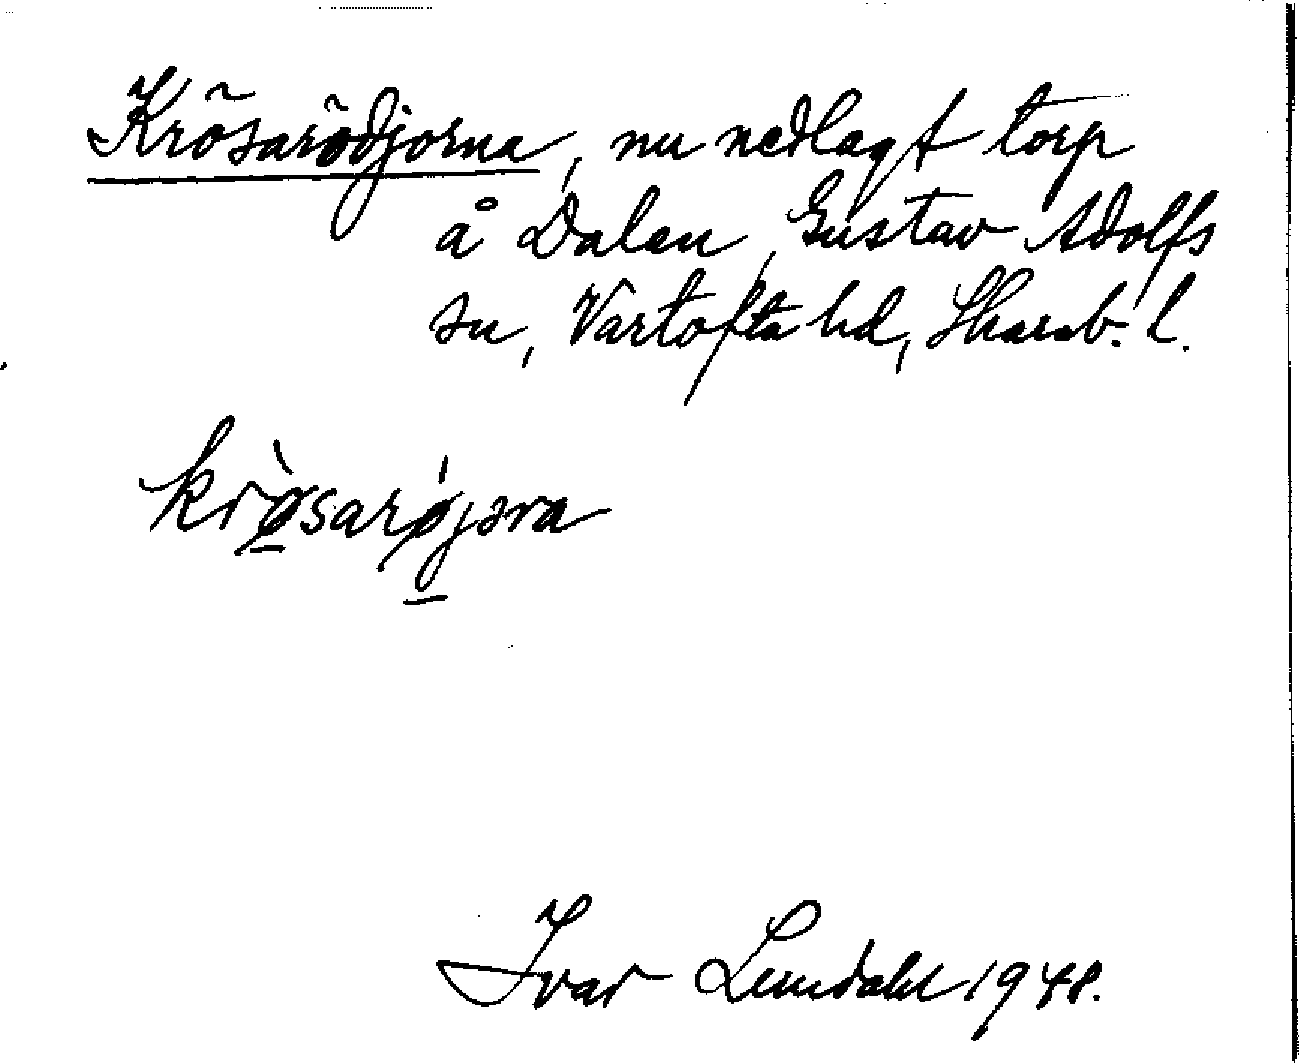 Krösarödjorna, nu nedlagt torp
å Dalen, Gustav Adolfs
sn, Vartofta hd, Skarab. l.
krø̠̀sarǿ̠jɔrna
Ivar Lundahl 1948.